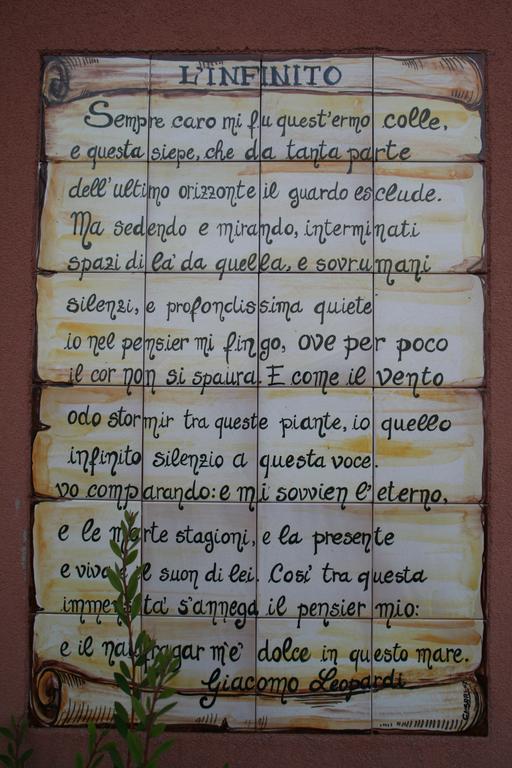 L'INFINITO
Sempre caro mi fu quest'ermo colle,
e questa siepe, che da tanta parte
dell'ultimo orizzonte il guardo esclude.
Ma sedendo e mirando, interminati
spazi di la' da quella, e sovrumani
silenzi, e profondissima quiete
io nel pensier mi fingo, ove per poco
il cor non si spaura. E come il vento
odo stormir tra queste piante, io quello
infinito silenzio a questa voce
vo comparando: e mi sovvien l'eterno,
e le morte stagioni, e la presente
e viva e il suon di lei. Cosi' tra questa
immensita' s'annega il pensier mio:
e il naufragar m'e' dolce in questo mare.
Giacomo Leopardi